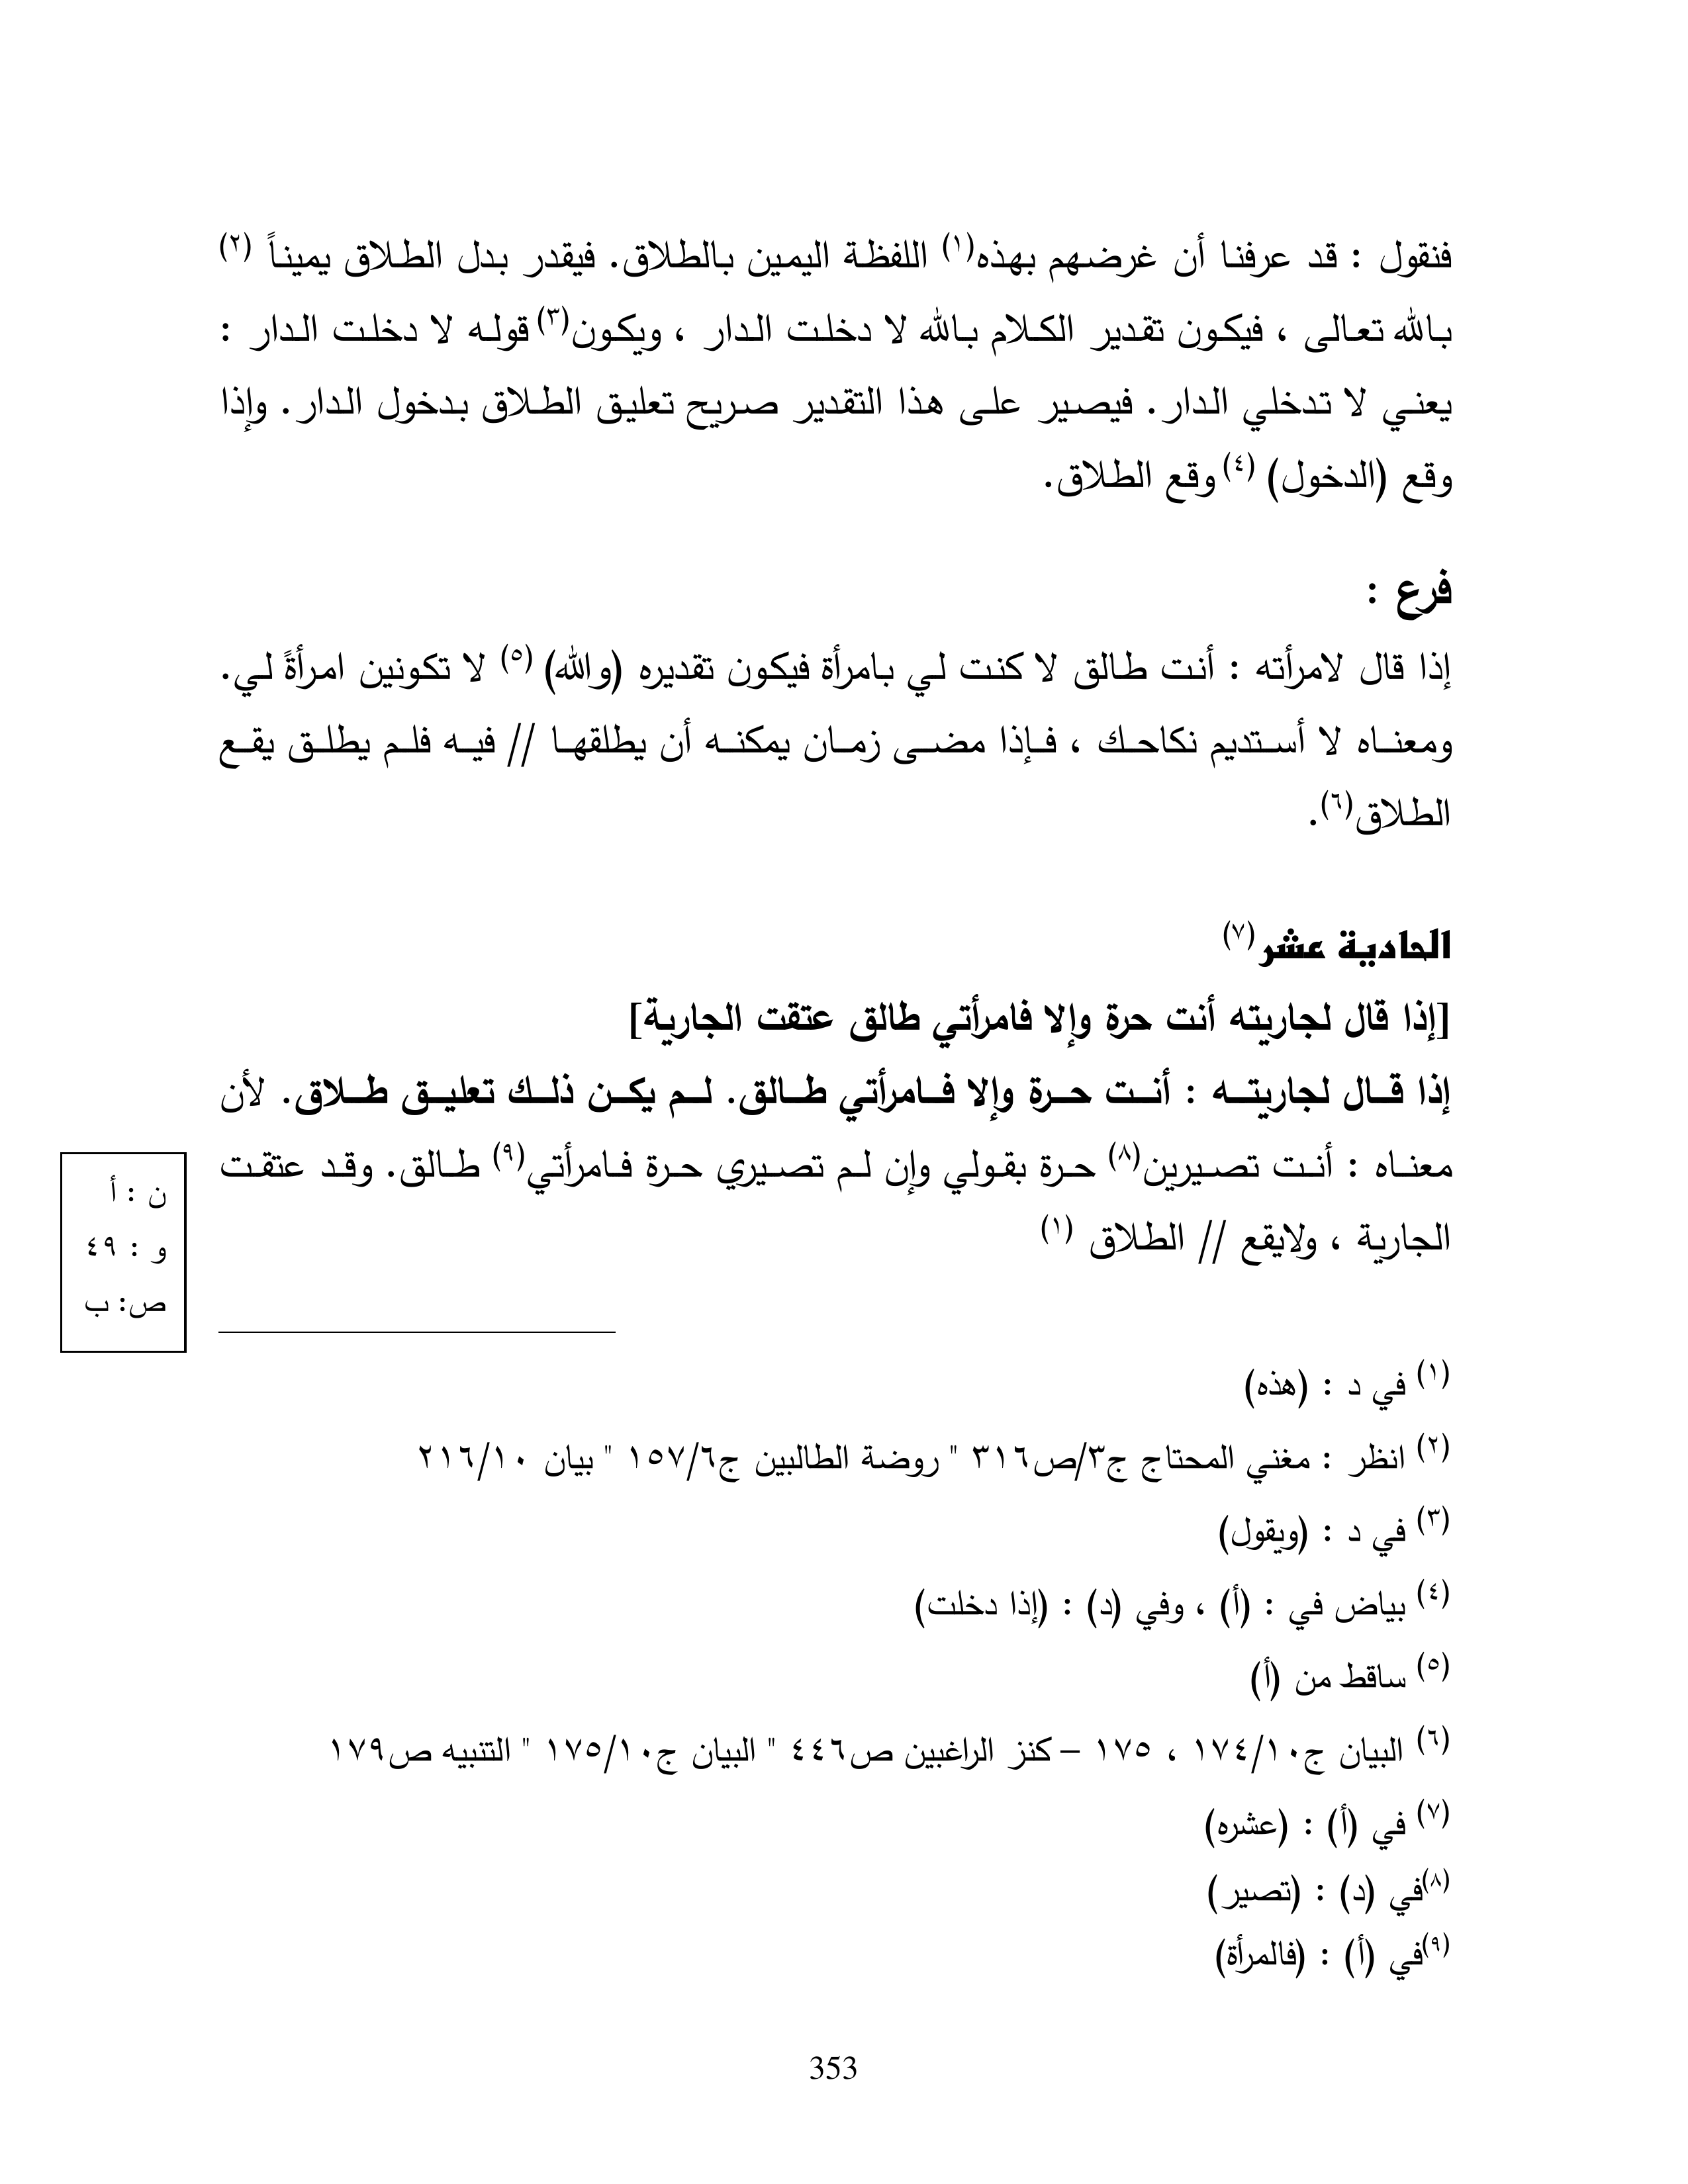 فنقول : قد عرفنا أن غرضهم بهذه(١) اللفظة اليمين بالطلاق. فيقدر بدل الطلاق يميناً (٢)
بالله تعالى ، فيكون تقدير الكلام بالله لا دخلت الدار ، ويكون(٣) قوله لا دخلت الدار :
يعني لا تدخلي الدار. فيصير على هذا التقدير صريح تعليق الطلاق بدخول الدار. وإذا
وقع (الدخول) (٤) وقع الطلاق.
فرع :
إذا قال لامرأته : أنت طالق لا كنت لي بامرأة فيكون تقديره (والله) (٥) لا تكونين امرأةً لي.
ومعناه لا أستديم نكاحك ، فإذا مضى زمان يمكنه أن يطلقها // فيه فلم يطلق يقع
الطلاق(٦).
الحادية عشر(٧)
[إذا قال لجاريته أنت حرة وإلا فامرأتي طالق عتقت الجارية]
إذا قال لجاريته : أنت حرة وإلا فامرأتي طالق. لم يكن ذلك تعليق طلاق. لأن
معناه : أنت تصيرين(٨) حرة بقولي وإن لم تصيري حرة فامرأتي(٩) طالق. وقد عتقت
الجارية ، ولايقع // الطلاق (١)
ن : أ
و : ٤٩
ص: ب
(١) في د : (هذه)
(٢) انظر : مغني المحتاج ج٣/ص٣١٦ " روضة الطالبين ج٦/١٥٧ " بيان ٢١٦/١٠
(٣) في د : (ويقول)
(٤) بياض في : (أ) ، وفي (د) : (إذا دخلت)
(٥) ساقط من (أ)
(٦) البيان ج١٧٤/١٠ ، ١٧٥ – كنز الراغبين ص٤٤٦ " البيان ج١٧٥/١٠ " التنبيه ص١٧٩
(٧) في (أ) : (عشره)
(٨)في (د) : (تصير)
(٩)في (أ) : (فالمرأة)
353